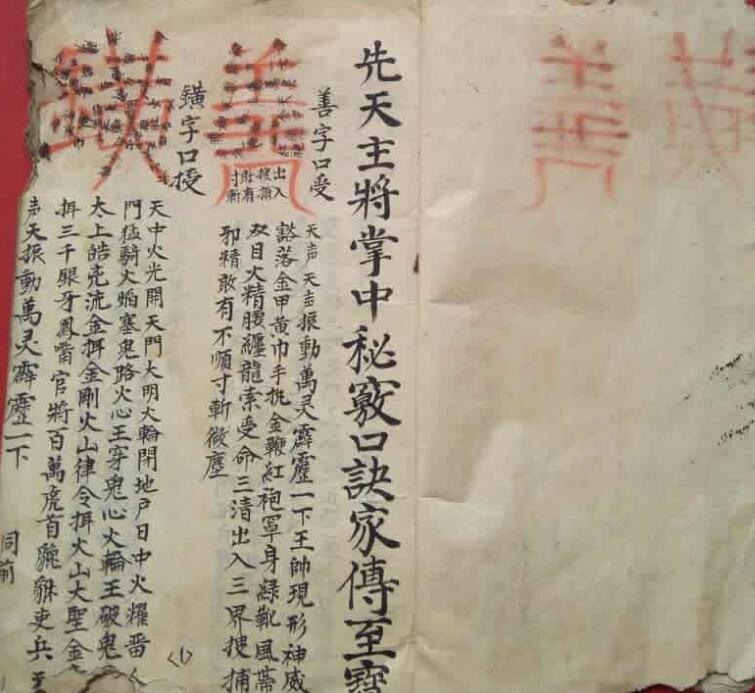 先天主將掌中秘竅口訣家傳至寶
善字口受
出入
搜捕
敢有
寸斬
天声天声振動萬灵霹靂一下王帥現形神威
豁落金甲黄巾手执金鞭紅袍罩身緑靴風帶
双目火精腰纏龍索受命三清出入三界搜捕
邪精敢有不順寸斬微塵
鐄字口授
天中火光開天門大明火輪開地户日中火耀
門猛騎火焰塞鬼路火心王穿鬼心火輪王破鬼
太上皓亮流金拜金剛火山律令拜火山大聖金
拜三千銀牙鳳嘴官將百萬虎首貔貅吏兵
声天振動萬灵霹靂一下
同前